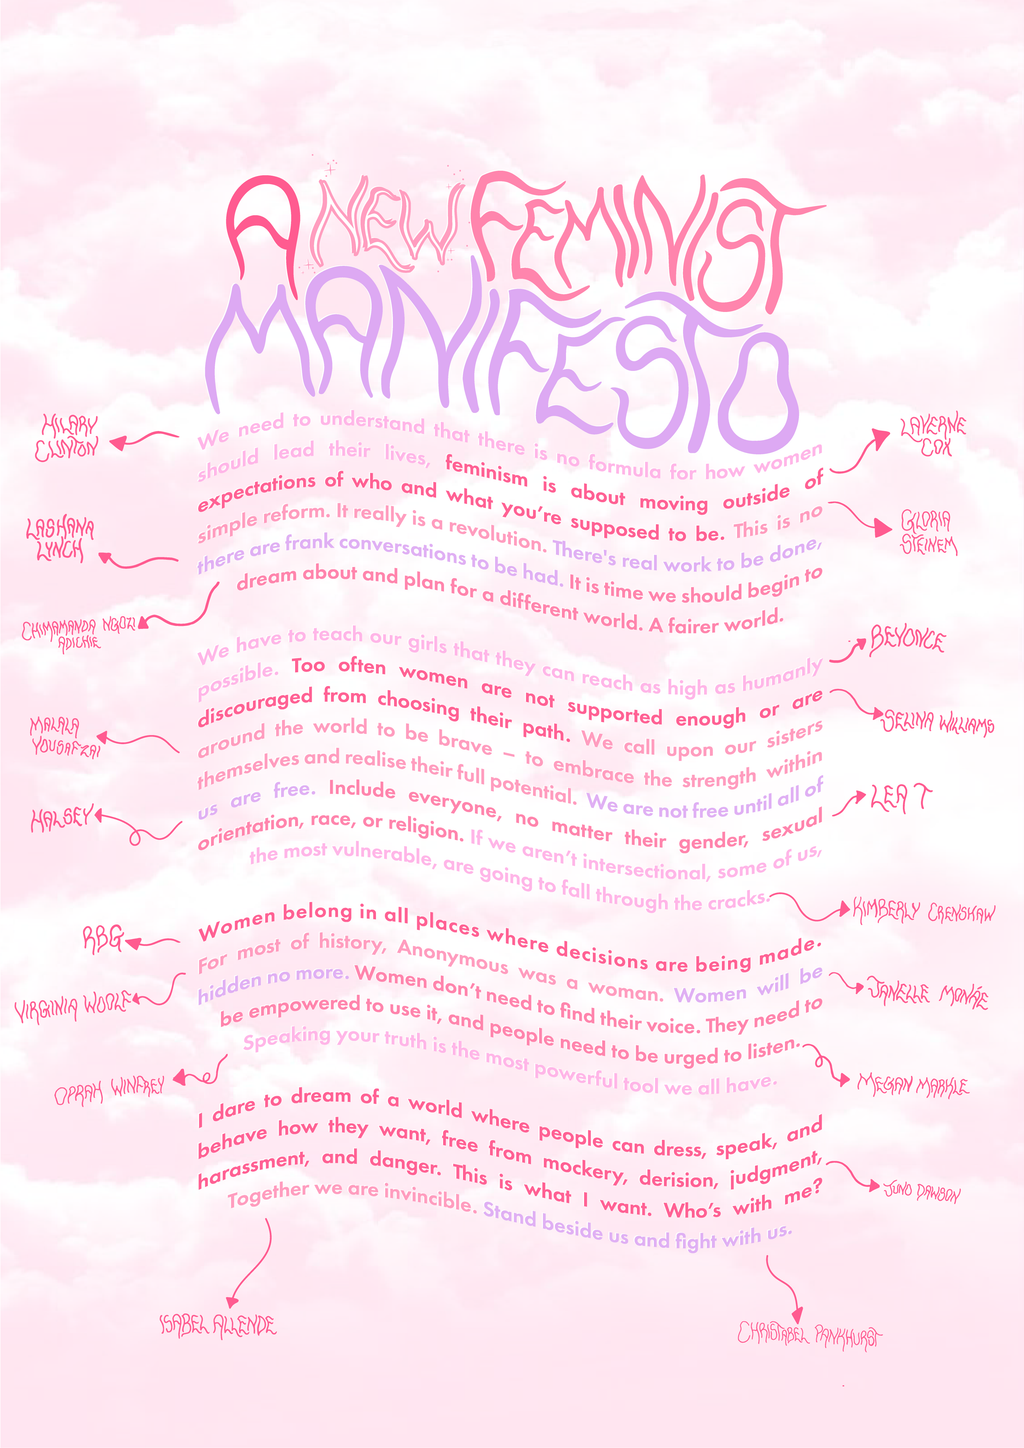 A NEW FEMINIST
MANIFESTO
HILARY
CLINTON
LAVERNE
COX
We need to understand that there is no formula for how women
should lead their lives, feminism is about moving outside of
expectations of who and what you're supposed to be. This is no
simple reform. It really is a revolution. There's real work to be done,
there are frank conversations to be had. It is time we should begin to
dream about and plan for a different world. A fairer world.
LASHANA
LYNCH
GLORIA
STEINEM
CHIMAMANDA NGOZI
ADICHIE
BEYONCE
We have to teach our girls that they can reach as high as humanly
possible. Too often women are not supported enough or are
discouraged from choosing their path. We call upon our sisters
around the world to be brave – to embrace the strength within
themselves and realise their full potential. We are not free until all of
us are free. Include everyone, no matter their gender, sexual
orientation, race, or religion. If we aren't intersectional, some of us,
the most vulnerable, are going to fall through the cracks.
SELINA WILLIAMS
MALALA
YOUSAFZAI
HALSEY
LEA T
KIMBERLY CRENSHAW
RBG
Women belong in all places where decisions are being made.
For most of history, Anonymous was a woman. Women will be
hidden no more. Women don't need to find their voice. They need to
be empowered to use it, and people need to be urged to listen.
Speaking your truth is the most powerful tool we all have.
VIRGINIA WOOLF
JANELLE MONÁE
OPRAH WINFREY
MEGAN MARKLE
I dare to dream of a world where people can dress, speak, and
behave how they want, free from mockery, derision, judgment,
harassment, and danger. This is what I want. Who's with me?
Together we are invincible. Stand beside us and fight with us.
JUNO DAWSON
ISABEL ALLENDE
CHRISTABEL PANKHURST